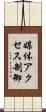 媒体アクセス制御